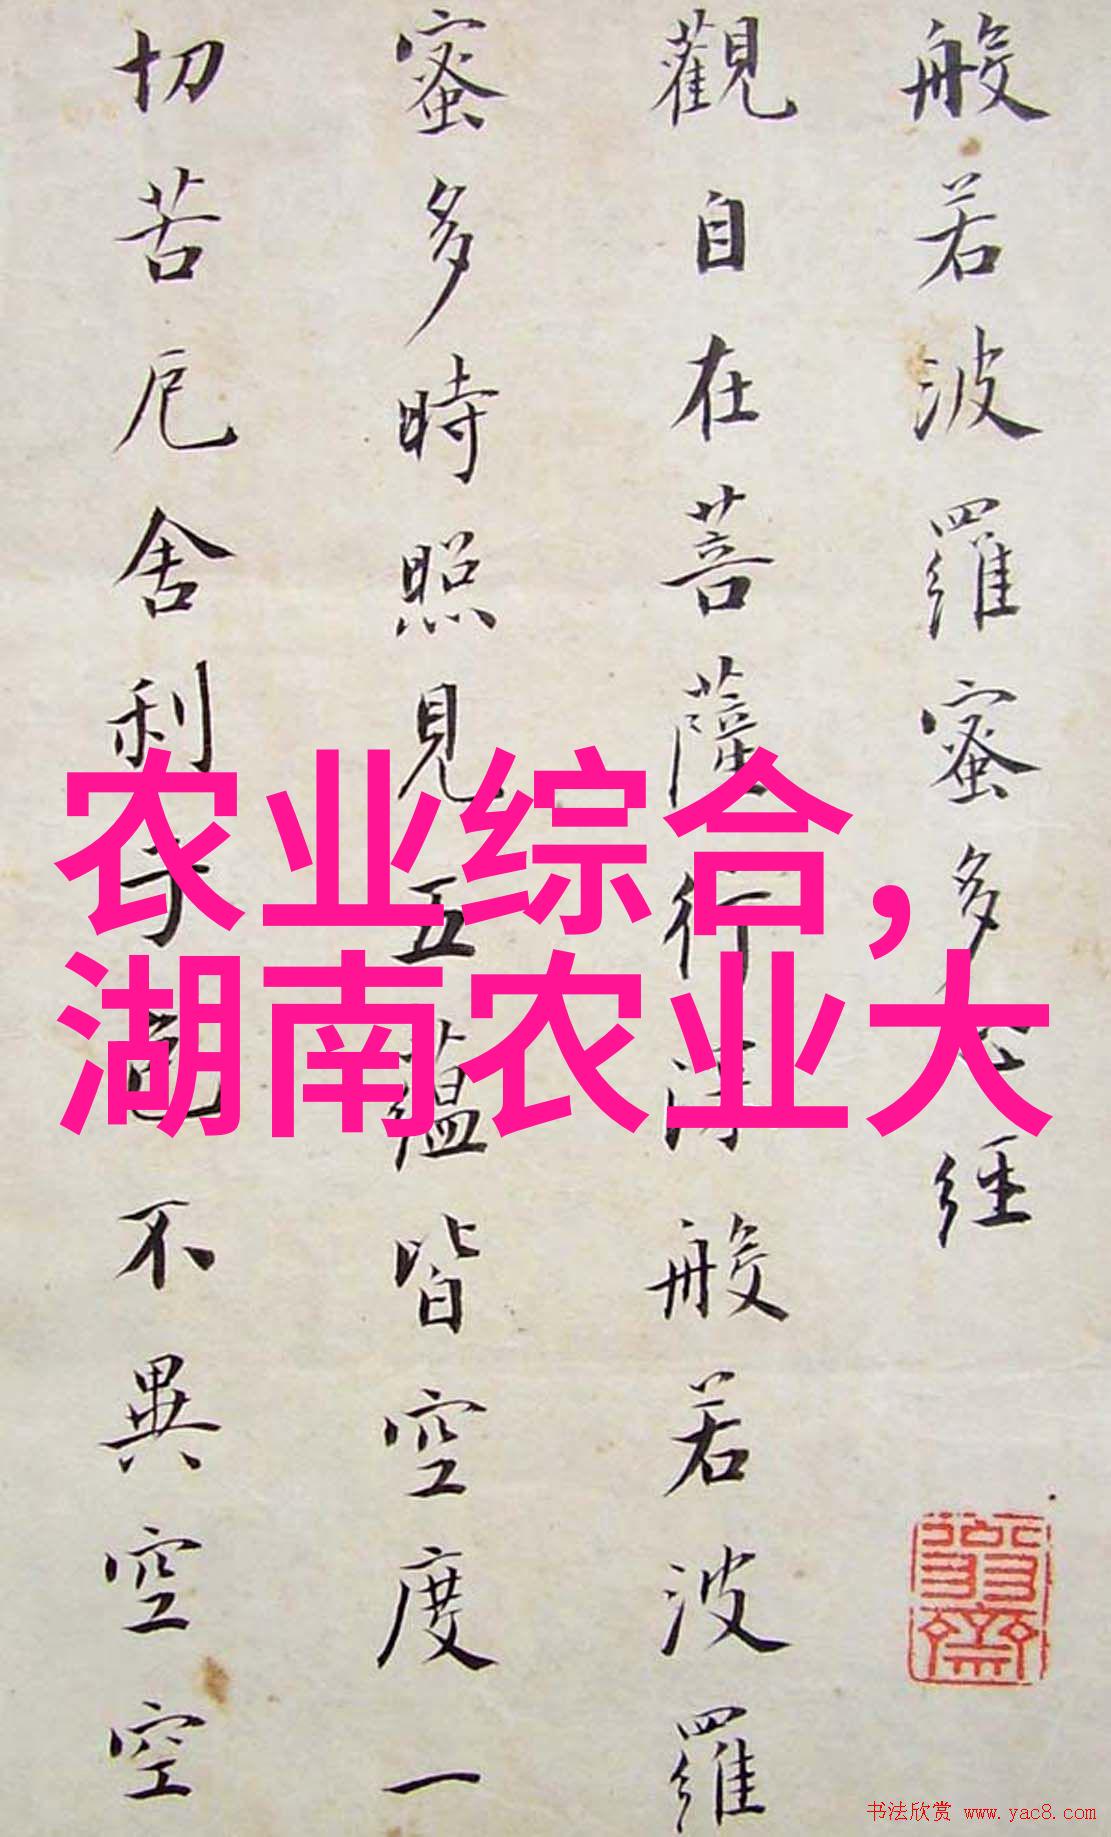 般若波羅蜜多心經
觀自在菩薩行深般若波羅
蜜多時照見五蘊皆空度一
切苦厄舍利子色不異空空
农业综合，
湖南农业大
书法欣赏 www.yac8.com